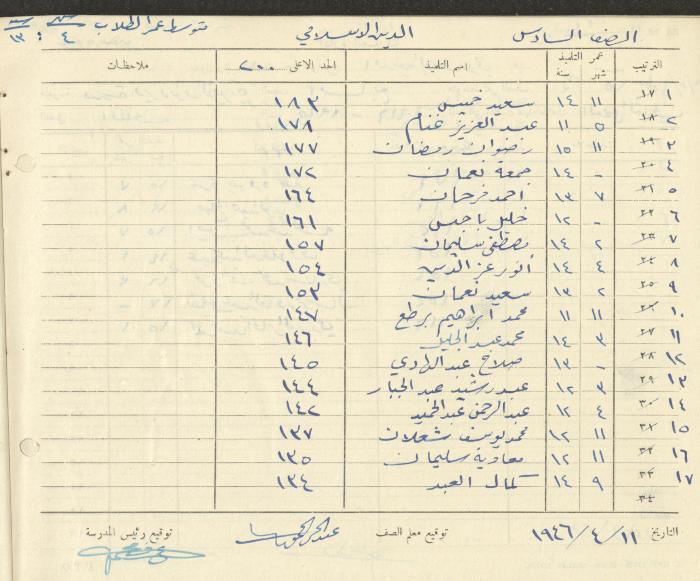 الصف السادس الدين الاسلامي متوسط عمر الطلاب سنة ١٣ : شهر ٤
الترتيب عمر التلميذ شهر سنة اسم التلميذ الحد الاعلى ٢٠٠ ملاحظات
١٧ ١ ١١ ١٤ سعيد خميس ١٨٣
١٨ ٢ ٥ ١١ عبد العزيز غنام ١٧٨
١٩ ٣ ١١ ١٥ رضوان رمضان ١٧٧
٢٠ ٤ - ١٤ جمعة نعمان ١٧٢
٢١ ٥ ٧ ١٣ احمد فرحان ١٦٤
٢٢ ٦ - ١٢ خليل ١٦١
٢٣ ٧ ٢ ١٤ مصطفى سليمان ١٥٧
٢٤ ٨ ٤ ١٤ انور عز الدين ١٥٤
٢٥ ٩ ٢ ١٣ سعيد نعمان ١٥٣
٢٦ ١٠ ١١ ١١ محمد ابراهيم ١٤٧
٢٧ ١١ ٣ ١٤ محمد عبد الجليل ١٤٦
٢٨ ١٢ - ١٣ صلاح عبد الهادي ١٤٥
٢٩ ١٣ ٣ ١٢ عبد رشيد عبد الجبار ١٤٤
٣٠ ١٤ ٤ ١٢ عبد الرحمن عبد الحميد ١٤٢
٣١ ١٥ ١١ ١٢ محمد يوسف شعلان ١٣٧
٣٢ ١٦ ١١ ١٢ معاوية سليمان ١٣٥
٣٣ ١٧ ٩ ١٤ كمال العبد ١٣٤
٣٤
التاريخ ١١/٤/١٩٤٦ توقيع معلم الصف توقيع رئيس المدرسة